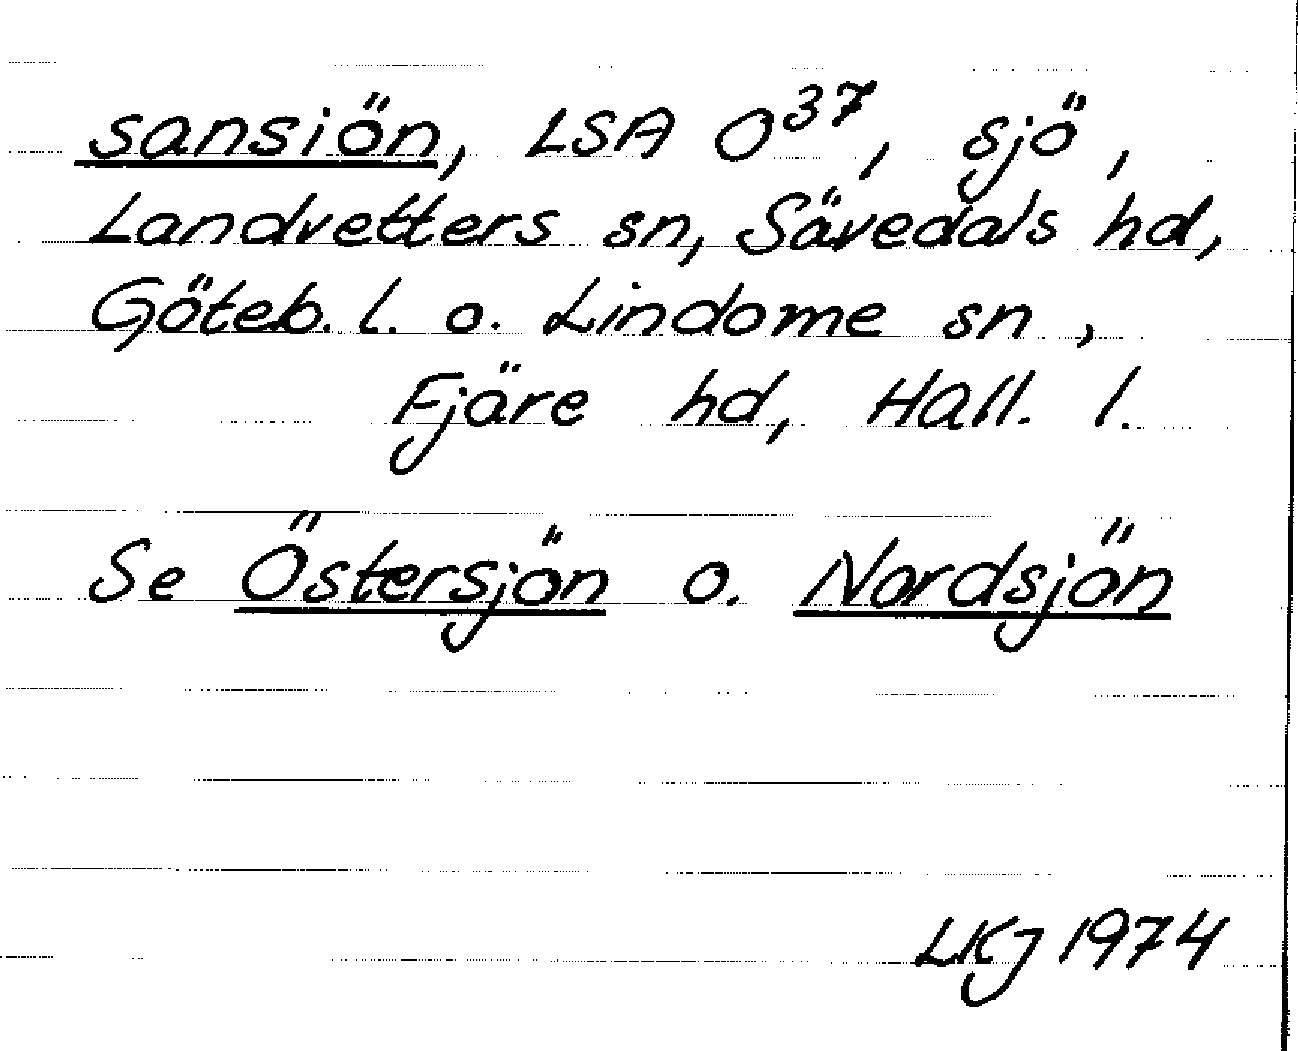 sansiön, LSA O³⁷, sjö,
Landvetters sn, Sävedals hd,
Göteb. l. o. Lindome sn,
Fjäre hd, Hall. l.
Se Östersjön o. Nordsjön
LKJ 1974